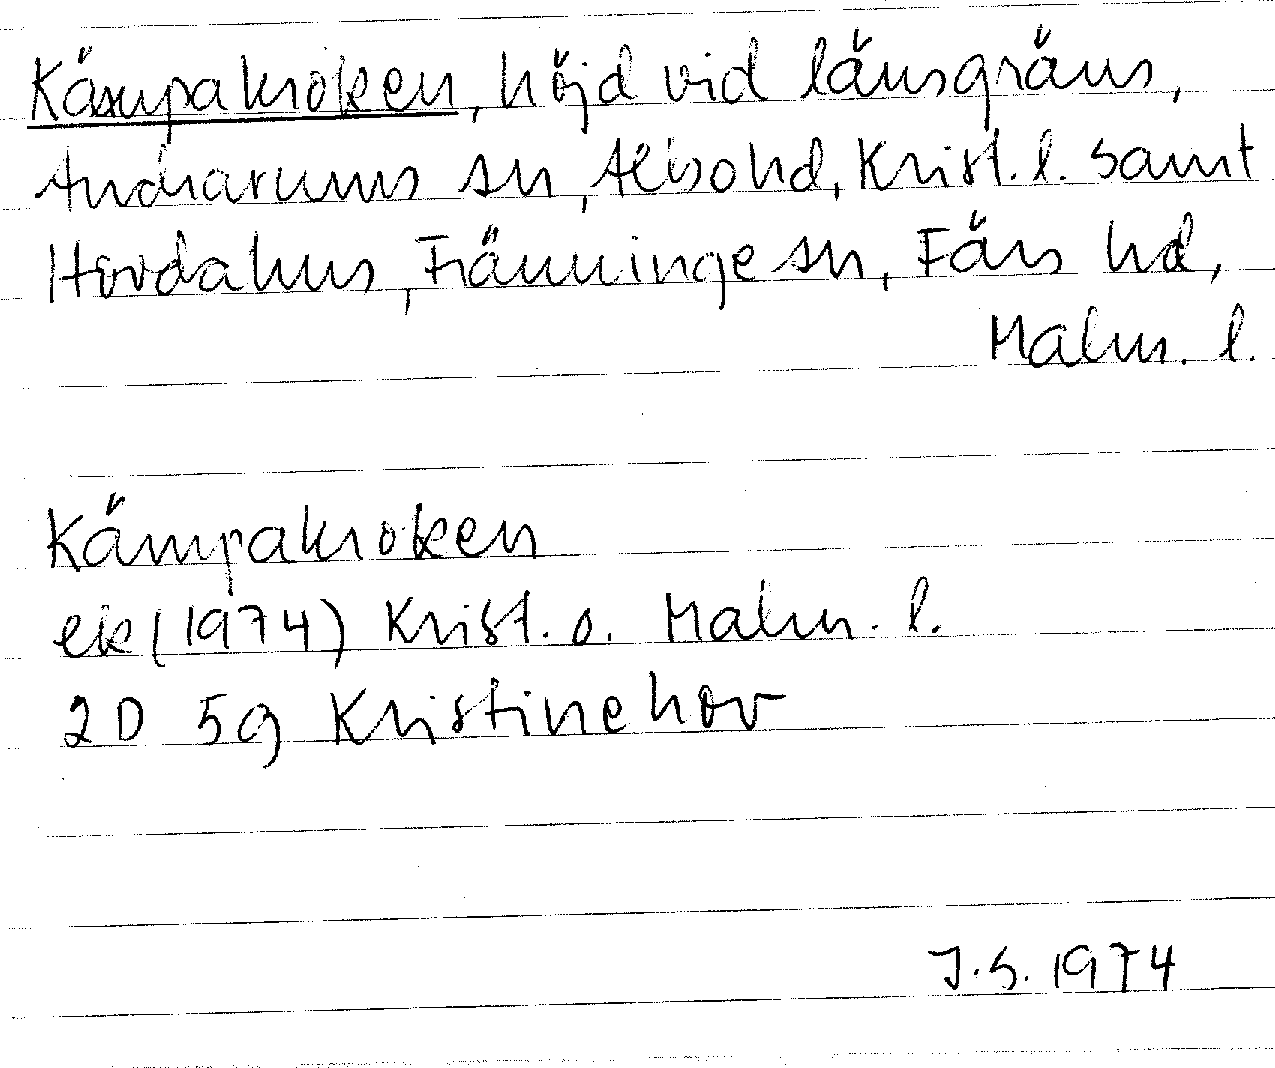 Kämpakroken, höjd vid länsgräns,
Andrarums sn, Albo hd, Krist. l. samt
Hovdahus, Fränninge sn, Färs hd,
Malm. l.
Kämpakroken
ek (1974) Krist. o. Malm. l.
2D 5g Kristinehov
J.S. 1974